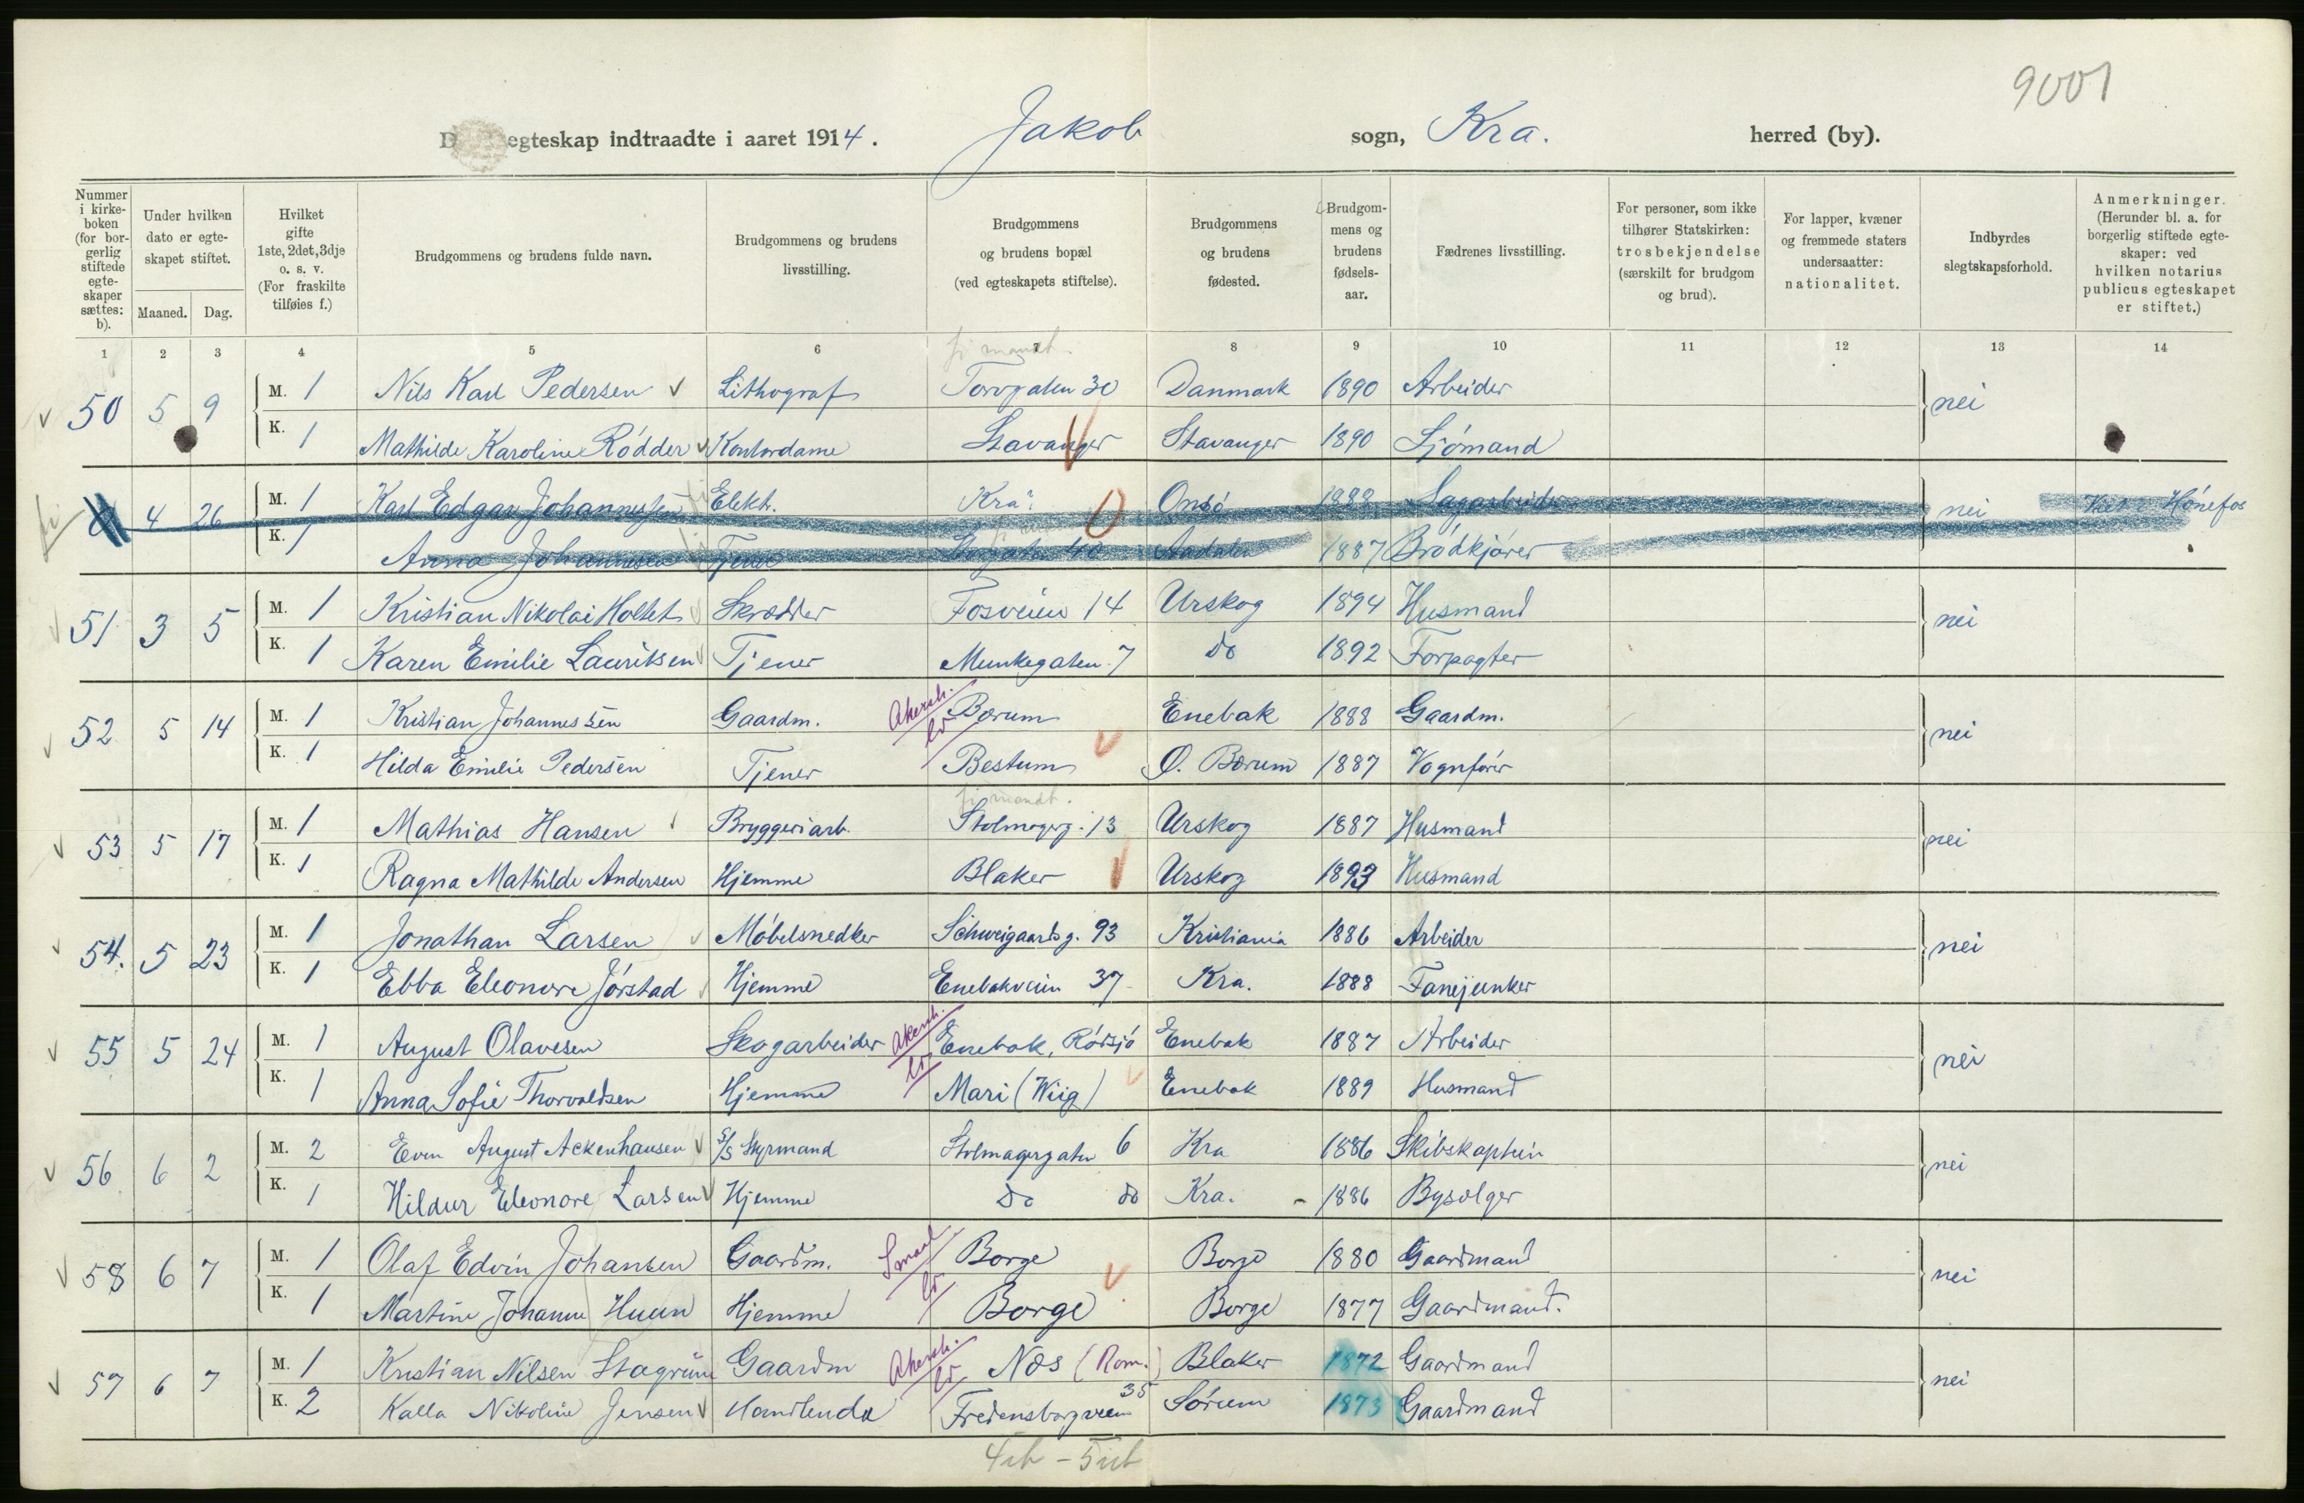 9001
egteskap indtraadte i aaret 1914. Jakob sogn, Kra. herred (by).
Nummer i kirkeboken (for borgerlig stiftede egteskaper sættes: b).
Under hvilken dato er egteskapet stiftet.
Maaned. Dag.
Hvilket gifte 1ste, 2det, 3dje o. s. v. (For fraskilte tilføies f.)
Brudgommens og brudens fulde navn.
Brudgommens og brudens livsstilling.
Brudgommens og brudens bopæl (ved egteskapets stiftelse).
Brudgommens og brudens fødested.
Brudgommens og brudens fødselsaar.
Fædrenes livsstilling.
For personer, som ikke tilhører Statskirken: trosbekjendelse (særskilt for brudgom og brud).
For lapper, kvæner og fremmede staters undersaatter: nationalitet.
Indbyrdes slegtskapsforhold.
Anmerkninger. (Herunder bl. a. for borgerlig stiftede egteskaper: ved hvilken notarius publicus egteskapet er stiftet.)
1 2 3 4 5 6 7 8 9 10 11 12 13 14
50 5 9 M. 1 Nils Karl Pedersen Lithograf Torvgaten 30 Danmark 1890 Arbeider nei
K. 1 Mathilde Karoline Rödder Kontordame Stavanger Stavanger 1890 Sjömand
4 26 M. 1 Karl Edgar Johannessen Elekt. Kra. Onsö 1888 Sagarbeider nei Hönefos
K. 1 Anna Johannesen Tjener Aadalen 1887 Brödkjörer
51 3 5 M. 1 Kristian Nikolai Holtet Skrædder Fosveien 14 Urskog 1894 Husmand nei
K. 1 Karen Emilie Lauritsen Tjener Munkegaten 7 do 1892 Forpagter
52 5 14 M. 1 Kristian Johannessen Gaardm. Akersh. Bærum Enebak 1888 Gaardm. nei
K. 1 Hilda Emilie Pedersen Tjener Bestum Ø. Bærum 1887 Vognfører
53 5 17 M. 1 Mathias Hansen Bryggeriarb. Stolmagerg. 13 Urskog 1887 Husmand nei
K. 1 Ragna Mathilde Andersen Hjemme Blaker Urskog 1893 Husmand
54. 5 23 M. 1 Jonathan Larsen Möbelsnedker Schweigaardsg. 93 Kristiania 1886 Arbeider nei
K. 1 Ebba Eleonore Jörstad Hjemme Enebakveien 37 Kra. 1888 Fanejunker
55 5 24 M. 1 August Olavesen Skogarbeider Akersh. Enebak, Rödsjö Enebak 1887 Arbeider nei
K. 1 Anna Sofie Thorvaldsen Hjemme Mari (Wiig) Enebak 1889 Husmand
56 6 2 M. 2 Even August Ackenhausen S/S Styrmand Stolmagergaten 6 Kra 1886 Skibskaptein nei
K. 1 Hildur Eleonore Larsen Hjemme do do Kra. 1886 Bysælger
58 6 7 M. 1 Olaf Edvin Johansen Gaardm. Smaal. Borge Borge 1880 Gaardmand nei
K. 1 Martine Johanne Huun Hjemme Borge Borge 1877 Gaardmand.
57 6 7 M. 1 Kristian Nilsen Gaardm Akersh. Næs (Rom.) Blaker 1872 Gaardmand nei
K. 2 Kalla Nikoline Jensen Handlende Fredensborgveien 35 Sörum 1873 Gaardmand